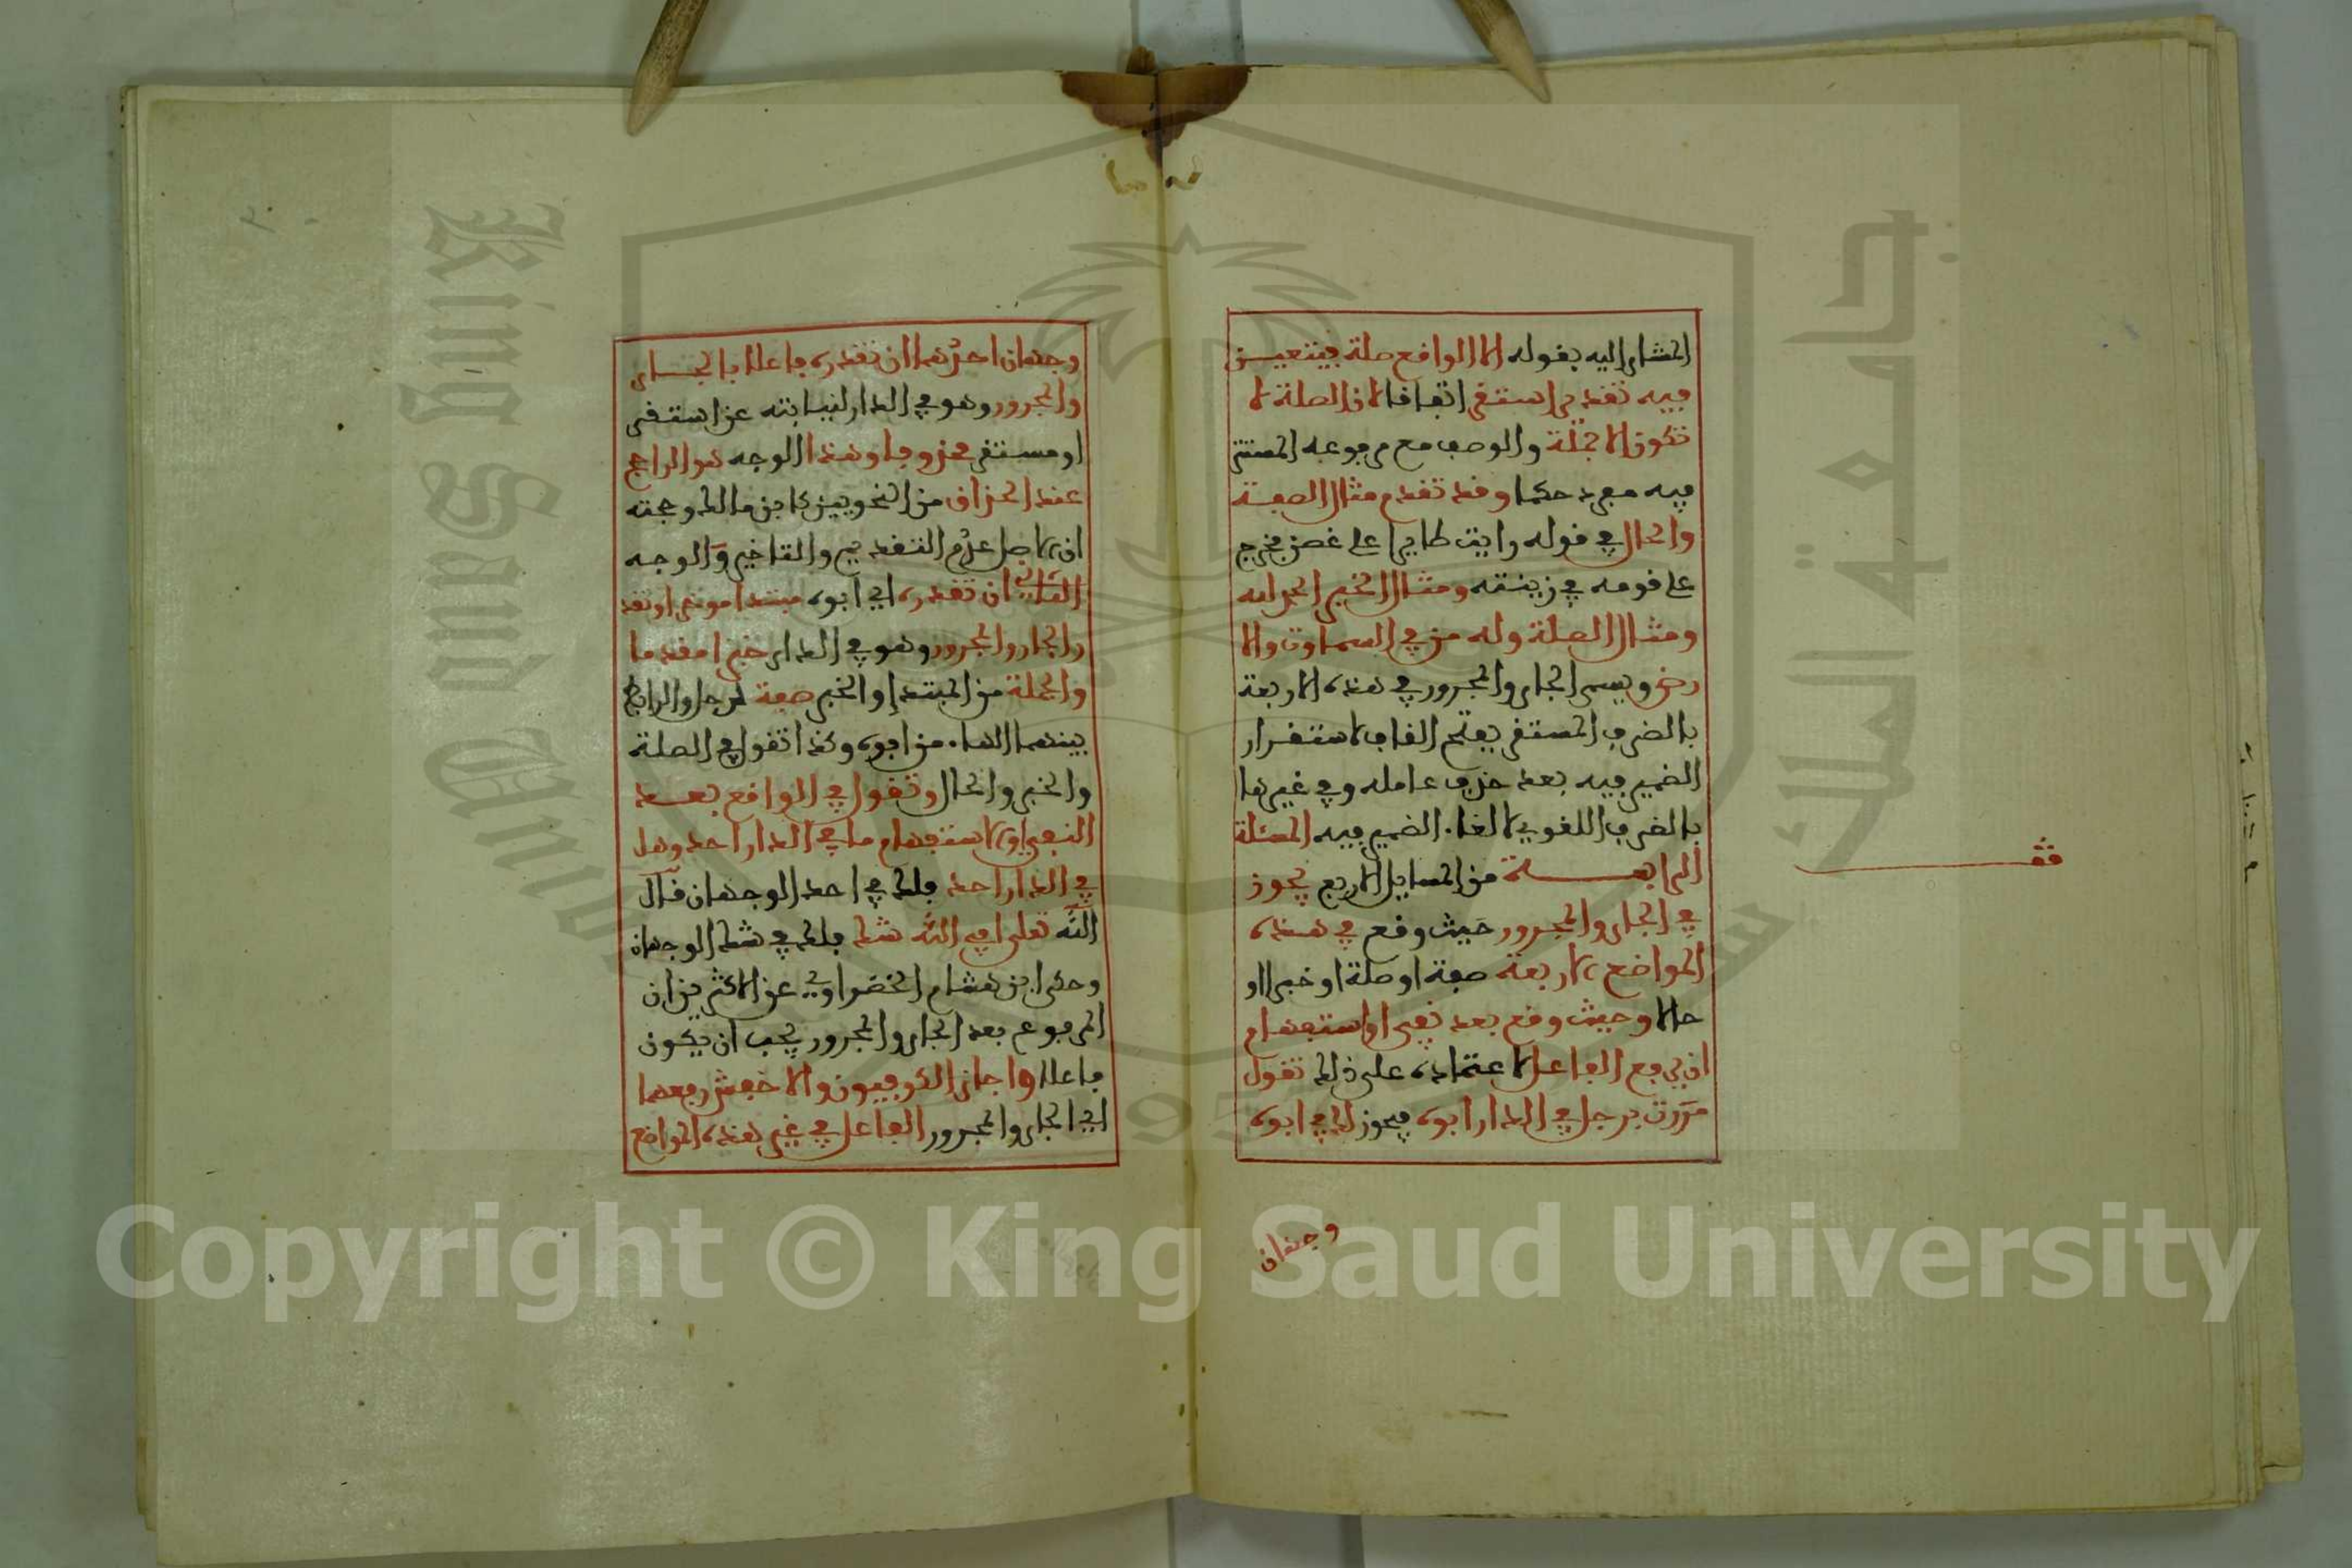 المشار اليه بقوله الا الواقع صلة فيتعيـن
فيه تقدير استقر اتفاقا لان الصلة لا
تكون الا جملة والوصف مع مرفوعه المستتر
فيه مفرد حكما وقد تقدم مثال الصفة
والحال في قوله رايت طايرا على غصن فخرج
على قومه في زينته ومثال الخبر الحمد لله
ومثال الصلة وله من في السماوات والا
رض ويسمى الجار والمجرور في هذه الاربعة
بالضرف المستقر بفتح القاف لاستقرار
الضمير فيه بعد حذف عامله وفي غيرها
بالضرف اللغوي لالغاء الضمير فيه المسئلة
الرابعـــة من المسايل الاربع يجوز
في الجار والمجرور حيث وقع في هذه
المواضع الاربعة صفة او صلة او خبرا او
حالا وحيث وقع بعد نفي او استفهام
ان يرفع الفاعل لاعتماده على ذلك تقول
مررت برجل في الدار ابوه فيجوز لك في ابوه
وجهان
قف
وجهان احدهما ان تقدره فاعلا بالجـار
والمجرور وهو في الدار لنيابته عن استقر
او مستقر محذوفا وهذا الوجه هو الراجح
عند الحذاق من النحويين كابن مالك وحجته
ان الاصل عدم التقديم والتاخير والوجه
الثاني ان تقدره اي ابوه مبتدا موخرا وتقد
ر الجار والمجرور وهو في الدار خبرا مقدما
والجملة من المبتدإ والخبر صفة لرجل والرابط
بينهما الهاء من ابوه وكذا تقول في الصلة
والخبر والحال وتقول في الواقع بعـد
النفي والاستفهام ما في الدار احد وهل
في الدار احد فلك في احد الوجهان قال
الله تعلى افي الله شك فلك في شك الوجهان
وحكى ابن هشام الخضراوي عن الاكثرين ان
المرفوع بعد الجار والمجرور يجب ان يكون
فاعلا واجاز الكوفيون والاخفش رفعهما
اي الجار والمجرور الفاعل في غير هذه المواضع
جامعة الملك سعود
King Saud University
Copyright © King Saud University